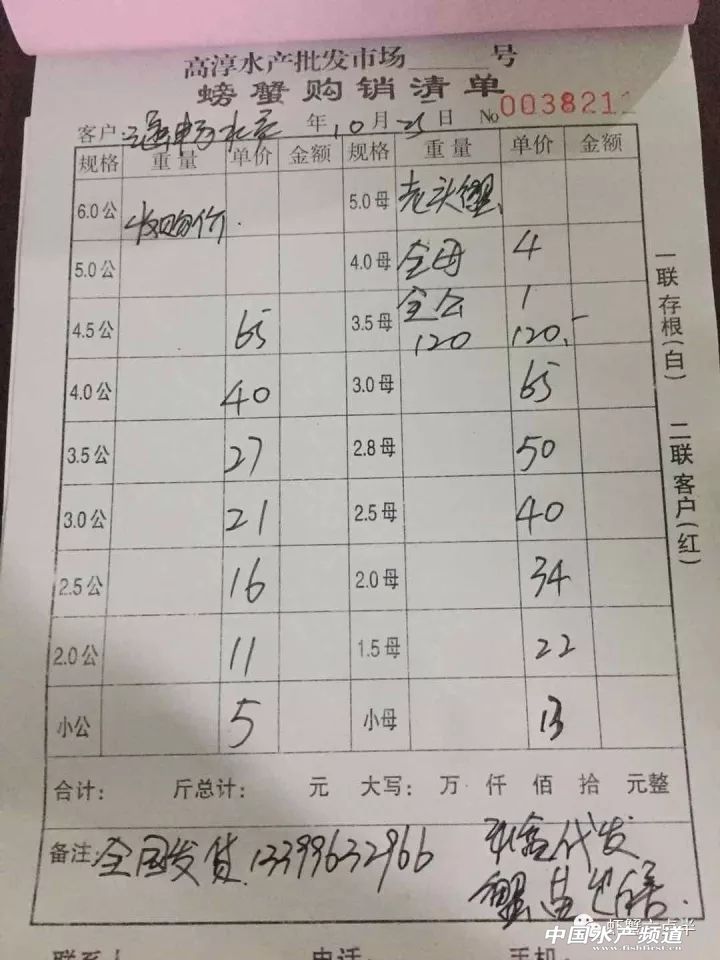 高淳水产批发市场 号
螃蟹购销清单
客户: 年10月25日 No 003821
规格 重量 单价 金额 规格 重量 单价 金额
6.0公 收购价. 5.0母 老头蟹
5.0公 4.0母 全母 4
4.5公 65 3.5母 全公 1
120 120.-
4.0公 40 3.0母 65
3.5公 27 2.8母 50
3.0公 21 2.5母 40
2.5公 16 2.0母 34
2.0公 11 1.5母 22
小公 5 小母 13
合计: 斤总计: 元 大写: 万 仟 佰 拾 元整
备注: 全国发货 13399632966 代发
蟹苗
联系人 电话 手机
一联存根(白) 二联客户(红)
虾蟹六点半
中国水产频道
www.fishfirst.cn